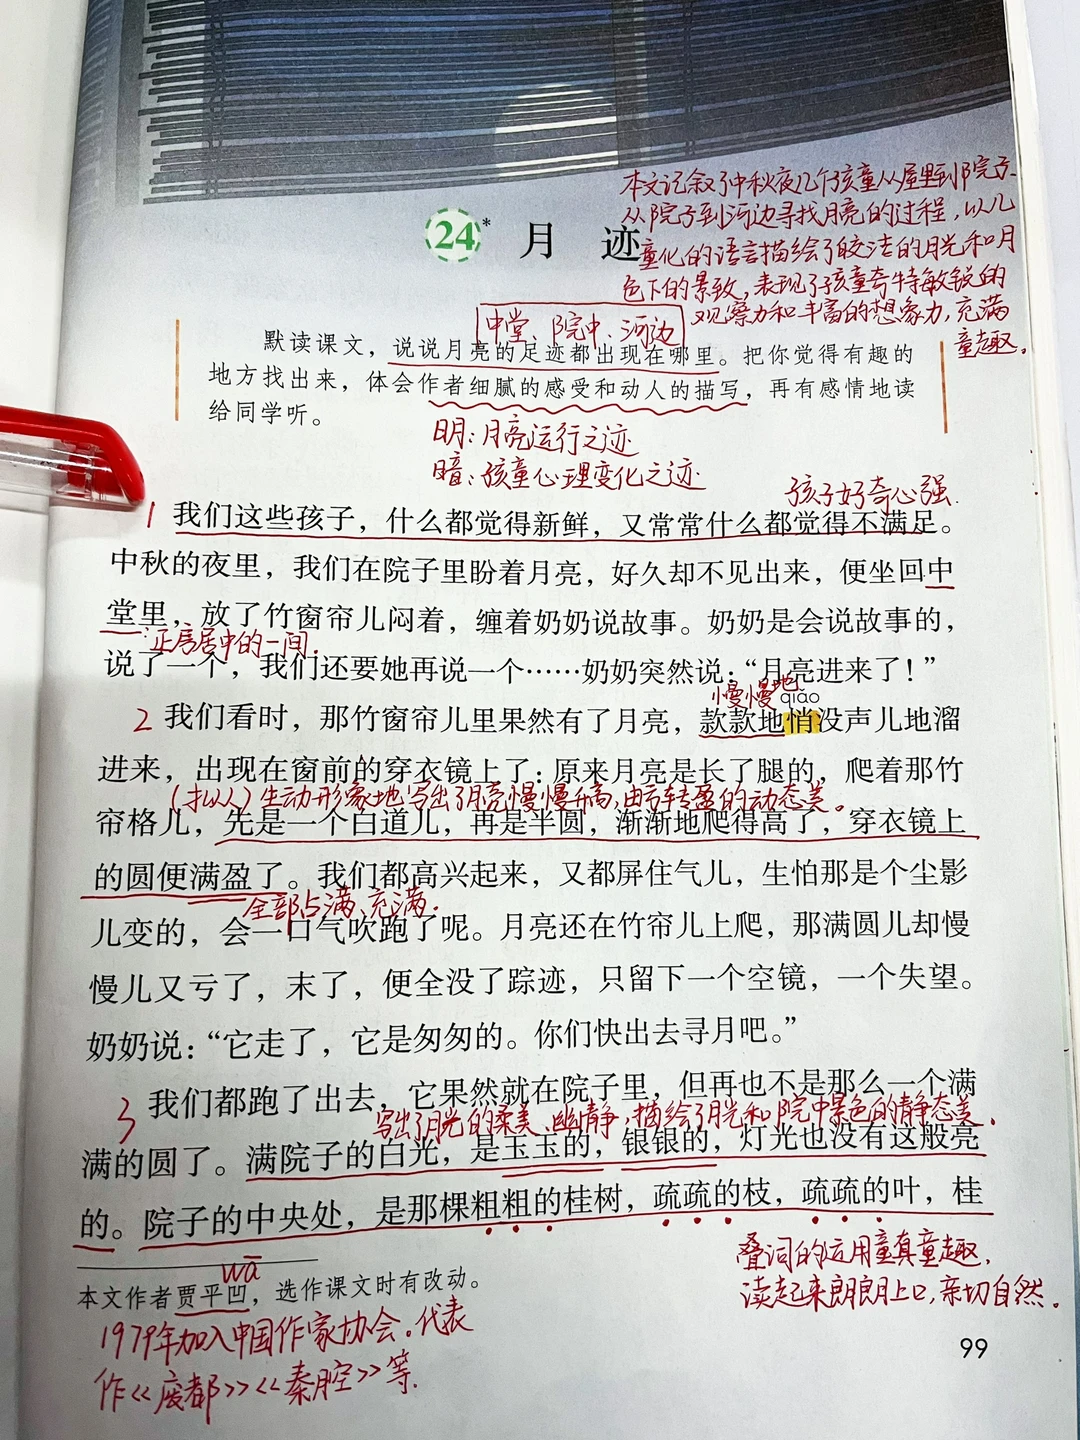 本文记叙了中秋夜几个孩童从屋里到院子、
从院子到河边寻找月亮的过程，以儿
24* 月 迹
童化的语言描绘了皎洁的月光和月
色下的景致，表现了孩童奇特敏锐的
观察力和丰富的想象力，充满
童趣。
中堂、院中、河边
默读课文，说说月亮的足迹都出现在哪里。把你觉得有趣的
地方找出来，体会作者细腻的感受和动人的描写，再有感情地读
给同学听。
明：月亮运行之迹
暗：孩童心理变化之迹
孩子好奇心强.
1 我们这些孩子，什么都觉得新鲜，又常常什么都觉得不满足。
中秋的夜里，我们在院子里盼着月亮，好久却不见出来，便坐回中
堂里，放了竹窗帘儿闷着，缠着奶奶说故事。奶奶是会说故事的，
:正房居中的一间.
说了一个，我们还要她再说一个……奶奶突然说：“月亮进来了！”
慢慢地 qiǎo
2 我们看时，那竹窗帘儿里果然有了月亮，款款地悄没声儿地溜
进来，出现在窗前的穿衣镜上了：原来月亮是长了腿的，爬着那竹
(拟人)生动形象地写出了月亮慢慢升高,由亏转盈的动态美。
帘格儿，先是一个白道儿，再是半圆，渐渐地爬得高了，穿衣镜上
的圆便满盈了。我们都高兴起来，又都屏住气儿，生怕那是个尘影
全部占满、充满.
儿变的，会一口气吹跑了呢。月亮还在竹帘儿上爬，那满圆儿却慢
慢儿又亏了，末了，便全没了踪迹，只留下一个空镜，一个失望。
奶奶说：“它走了，它是匆匆的。你们快出去寻月吧。”
3 我们都跑了出去，它果然就在院子里，但再也不是那么一个满
写出了月光的柔美、幽静,描绘了月光和院中景色的静态美.
满的圆了。满院子的白光，是玉玉的，银银的，灯光也没有这般亮
的。院子的中央处，是那棵粗粗的桂树，疏疏的枝，疏疏的叶，桂
叠词的运用童真童趣,
读起来朗朗上口,亲切自然。
wā
本文作者贾平凹，选作课文时有改动。
1979年加入中国作家协会。代表
作<<废都>><<秦腔>>等.
99